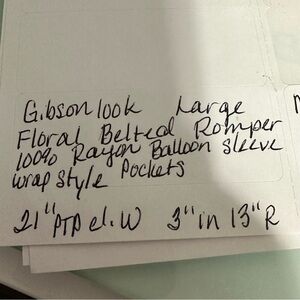 Gibson look Large
Floral Belted Romper
100% Rayon Balloon Sleeve
wrap style Pockets
21" PTP el. W 3" in 13" R